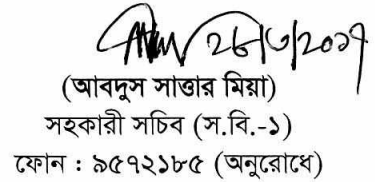 ২৮/৩/২০১৭
(আবদুস সাত্তার মিয়া)
সহকারী সচিব (স.বি.-১)
ফোন : ৯৫৭২১৮৫ (অনুরোধে)